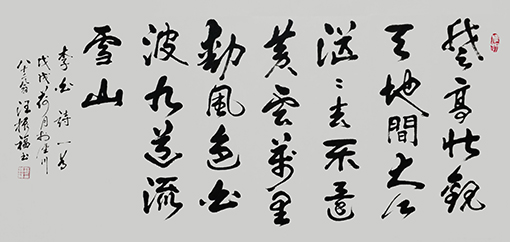 登高壮觀
天地間大江
茫〻去不還
黄雲萬里
動風色白
波九道流
雪山
李白詩一首
戊戌荷月
汪振福书